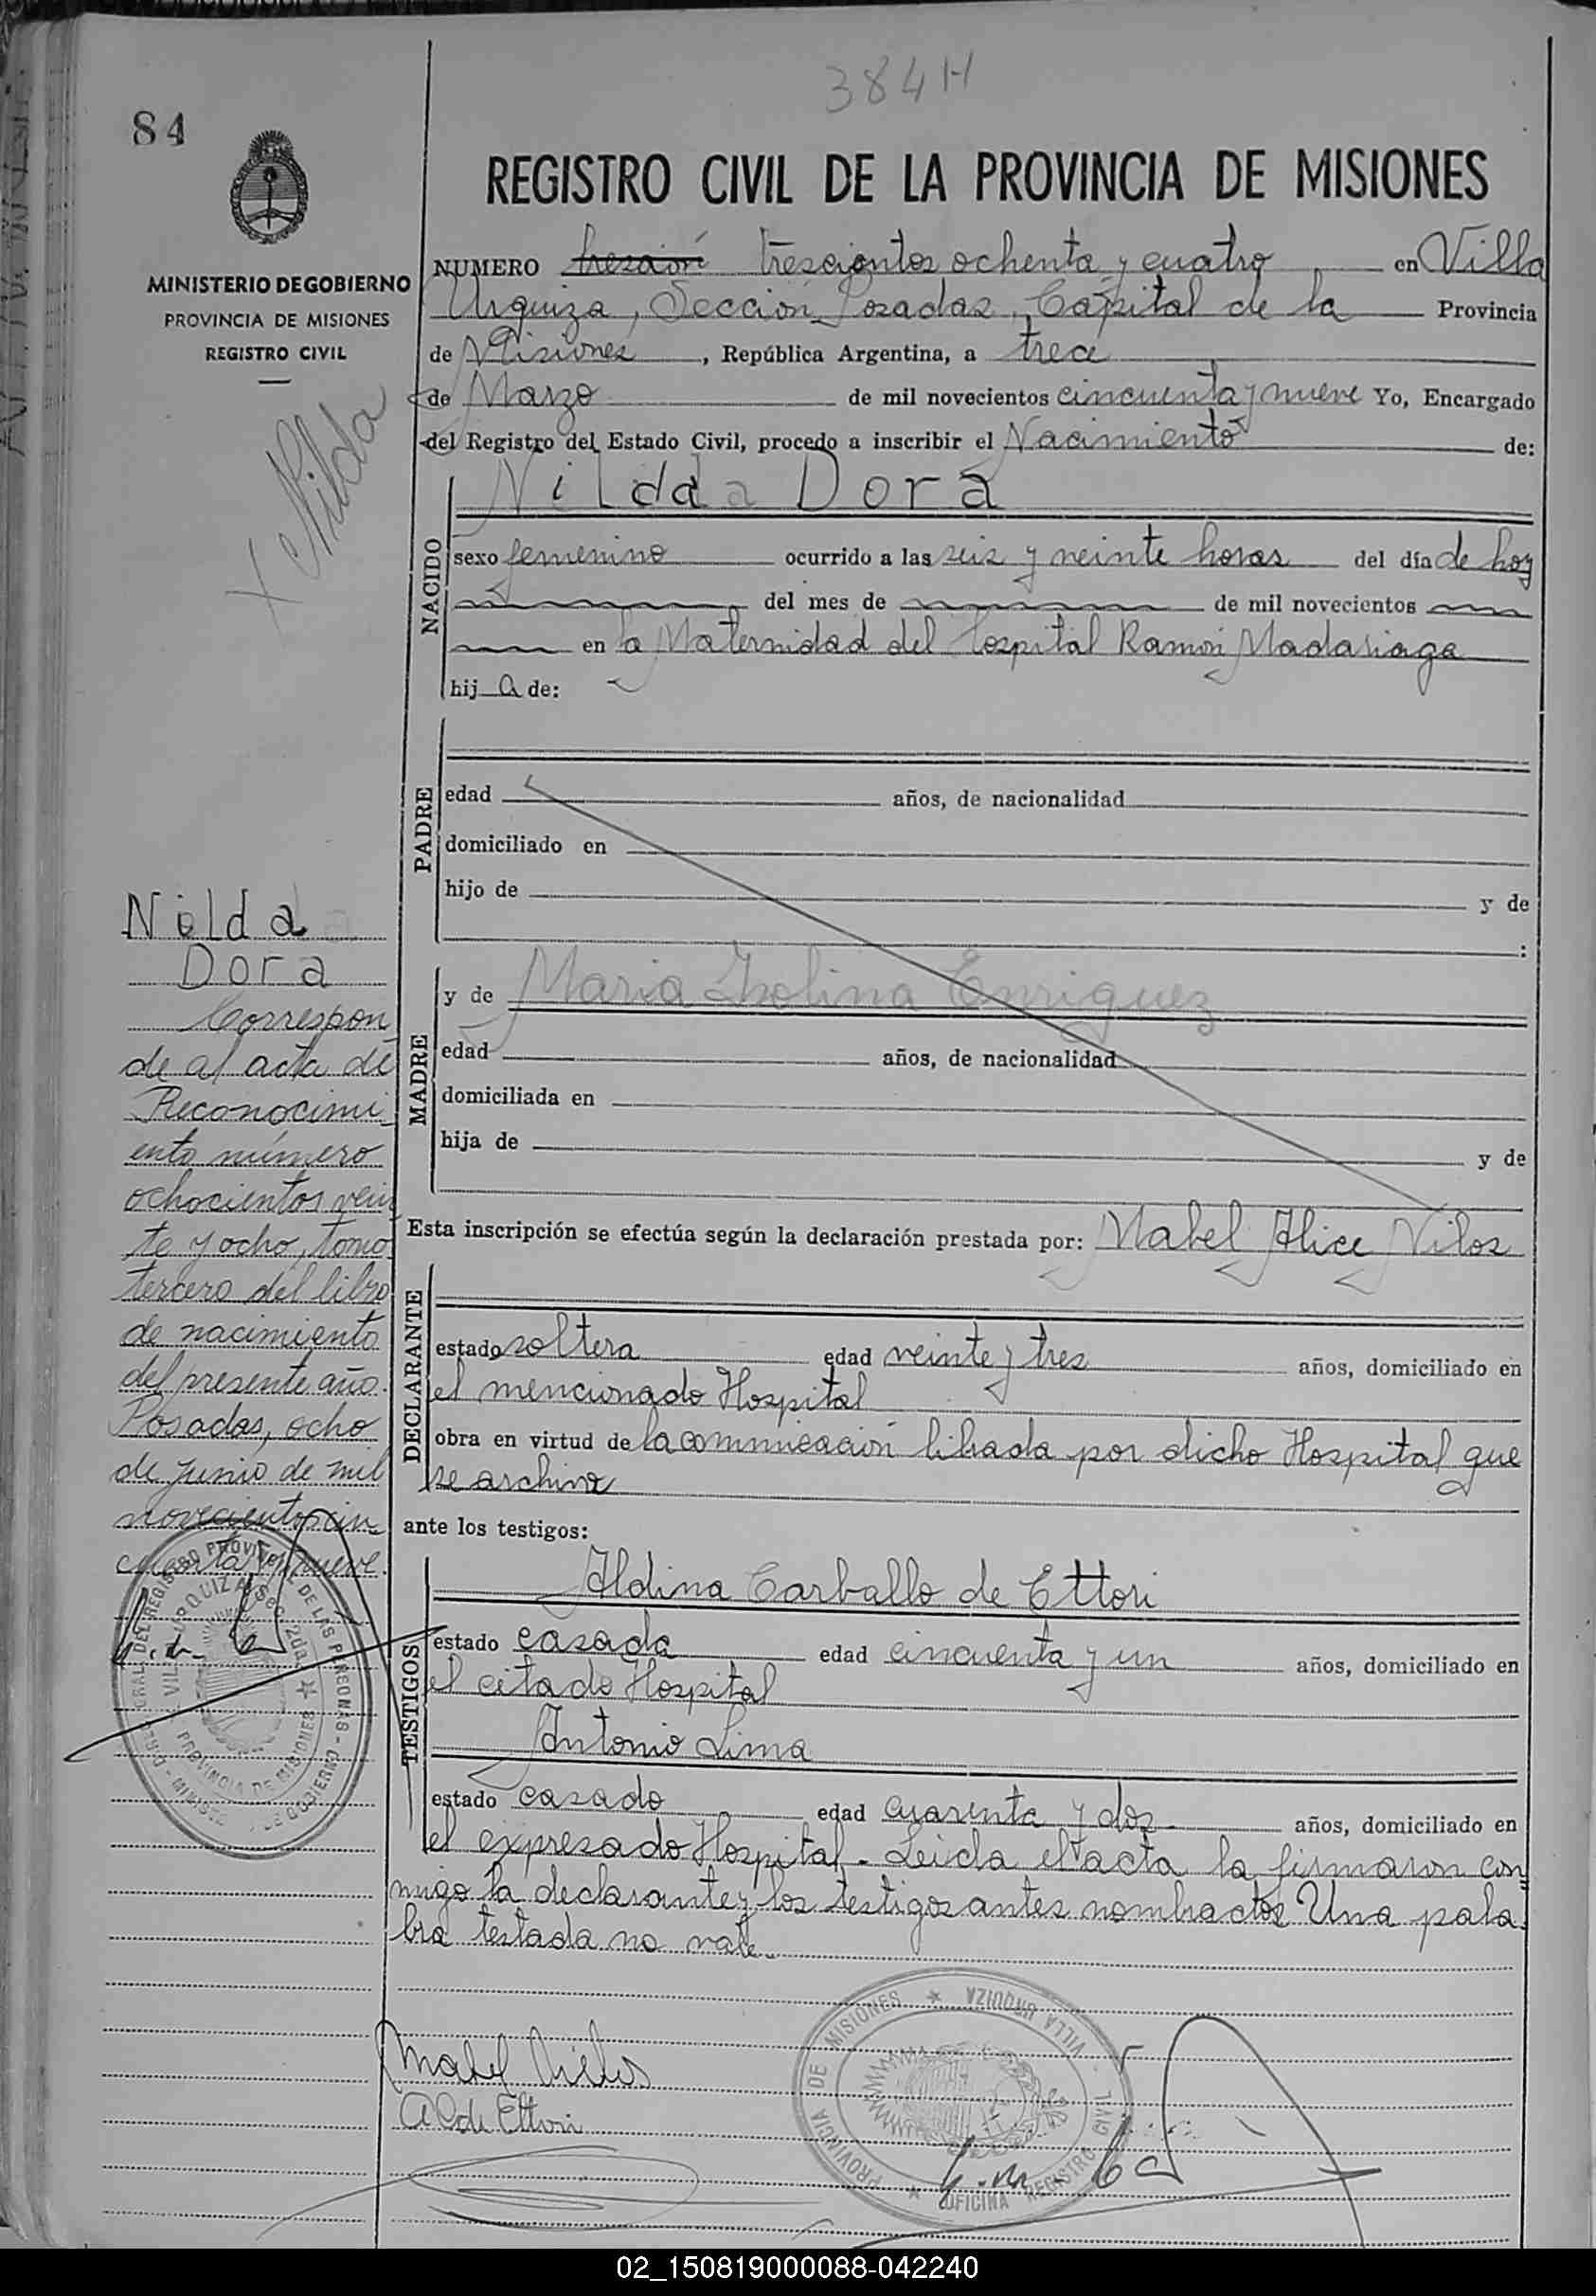 384H
84
REGISTRO CIVIL DE LA PROVINCIA DE MISIONES
MINISTERIO DE GOBIERNO
PROVINCIA DE MISIONES
REGISTRO CIVIL
NUMERO trescientos ochenta y cuatro en Villa
Urquiza, Sección Posadas, Capital de la Provincia
de Misiones, República Argentina, a trece
de Marzo de mil novecientos cincuenta y nueve Yo, Encargado
del Registro del Estado Civil, procedo a inscribir el Nacimiento de:
X Nilda
NACIDO
Nilda Dora
sexo femenino ocurrido a las seis y veinte horas del día de hoy
del mes de de mil novecientos
en la Maternidad del Hospital Ramón Madariaga
hija de:
PADRE
edad años, de nacionalidad
domiciliado en
hijo de y de
:
MADRE
y de Maria Isolina Enriquez
edad años, de nacionalidad
domiciliada en
hija de y de
Nilda
Dora
Correspon
de al acta de
Reconocimi
ento número
ochocientos vein
te y ocho, tomo
tercero del libro
de nacimiento
del presente año.
Posadas, ocho
de junio de mil
novecientos cin
cuenta y nueve.
Esta inscripción se efectúa según la declaración prestada por: Mabel Alice Vilos
DECLARANTE
estado soltera edad veinte y tres años, domiciliado en
el mencionado Hospital
obra en virtud de la comunicación librada por dicho Hospital que
se archiva
ante los testigos:
TESTIGOS
Aldina Carballo de Ettori
estado casada edad cincuenta y un años, domiciliado en
el citado Hospital
Antonio Lima
estado casado edad cuarenta y dos años, domiciliado en
el expresado Hospital. Leida el acta la firmaron con
migo la declarante y los testigos antes nombrados Una pala
bra testada no vale.
Mabel Vilos
A C de Ettori
PROVINCIA DE MISIONES ★ VILLA URQUIZA
OFICINA REGISTRO CIVIL ★
02_150819000088-042240